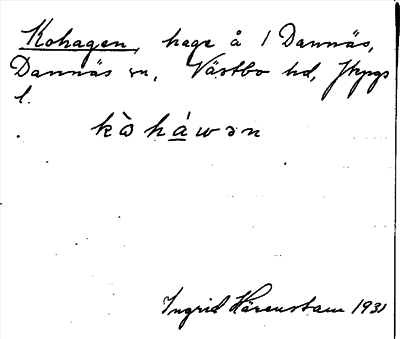 Kohagen, hage å 1 Dannäs,
Dannäs sn, Västbo hd, Jkpgs
l.
kòhàwən
Ingrid Härenstam 1931